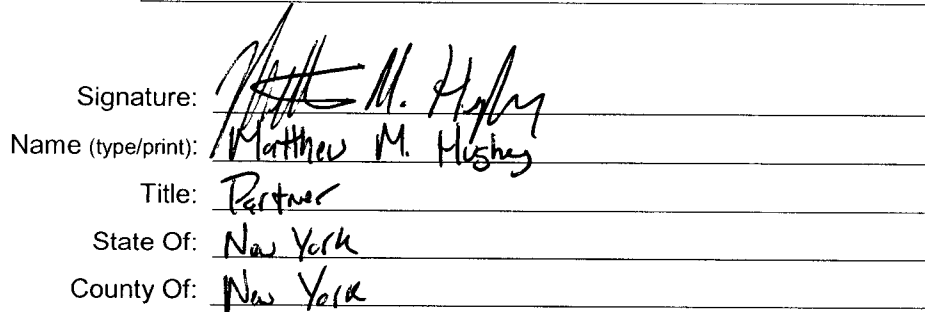 Signature: Matthew M. Hughey
Name (type/print): Matthew M. Hughey
Title: Partner
State Of: New York
County Of: New York